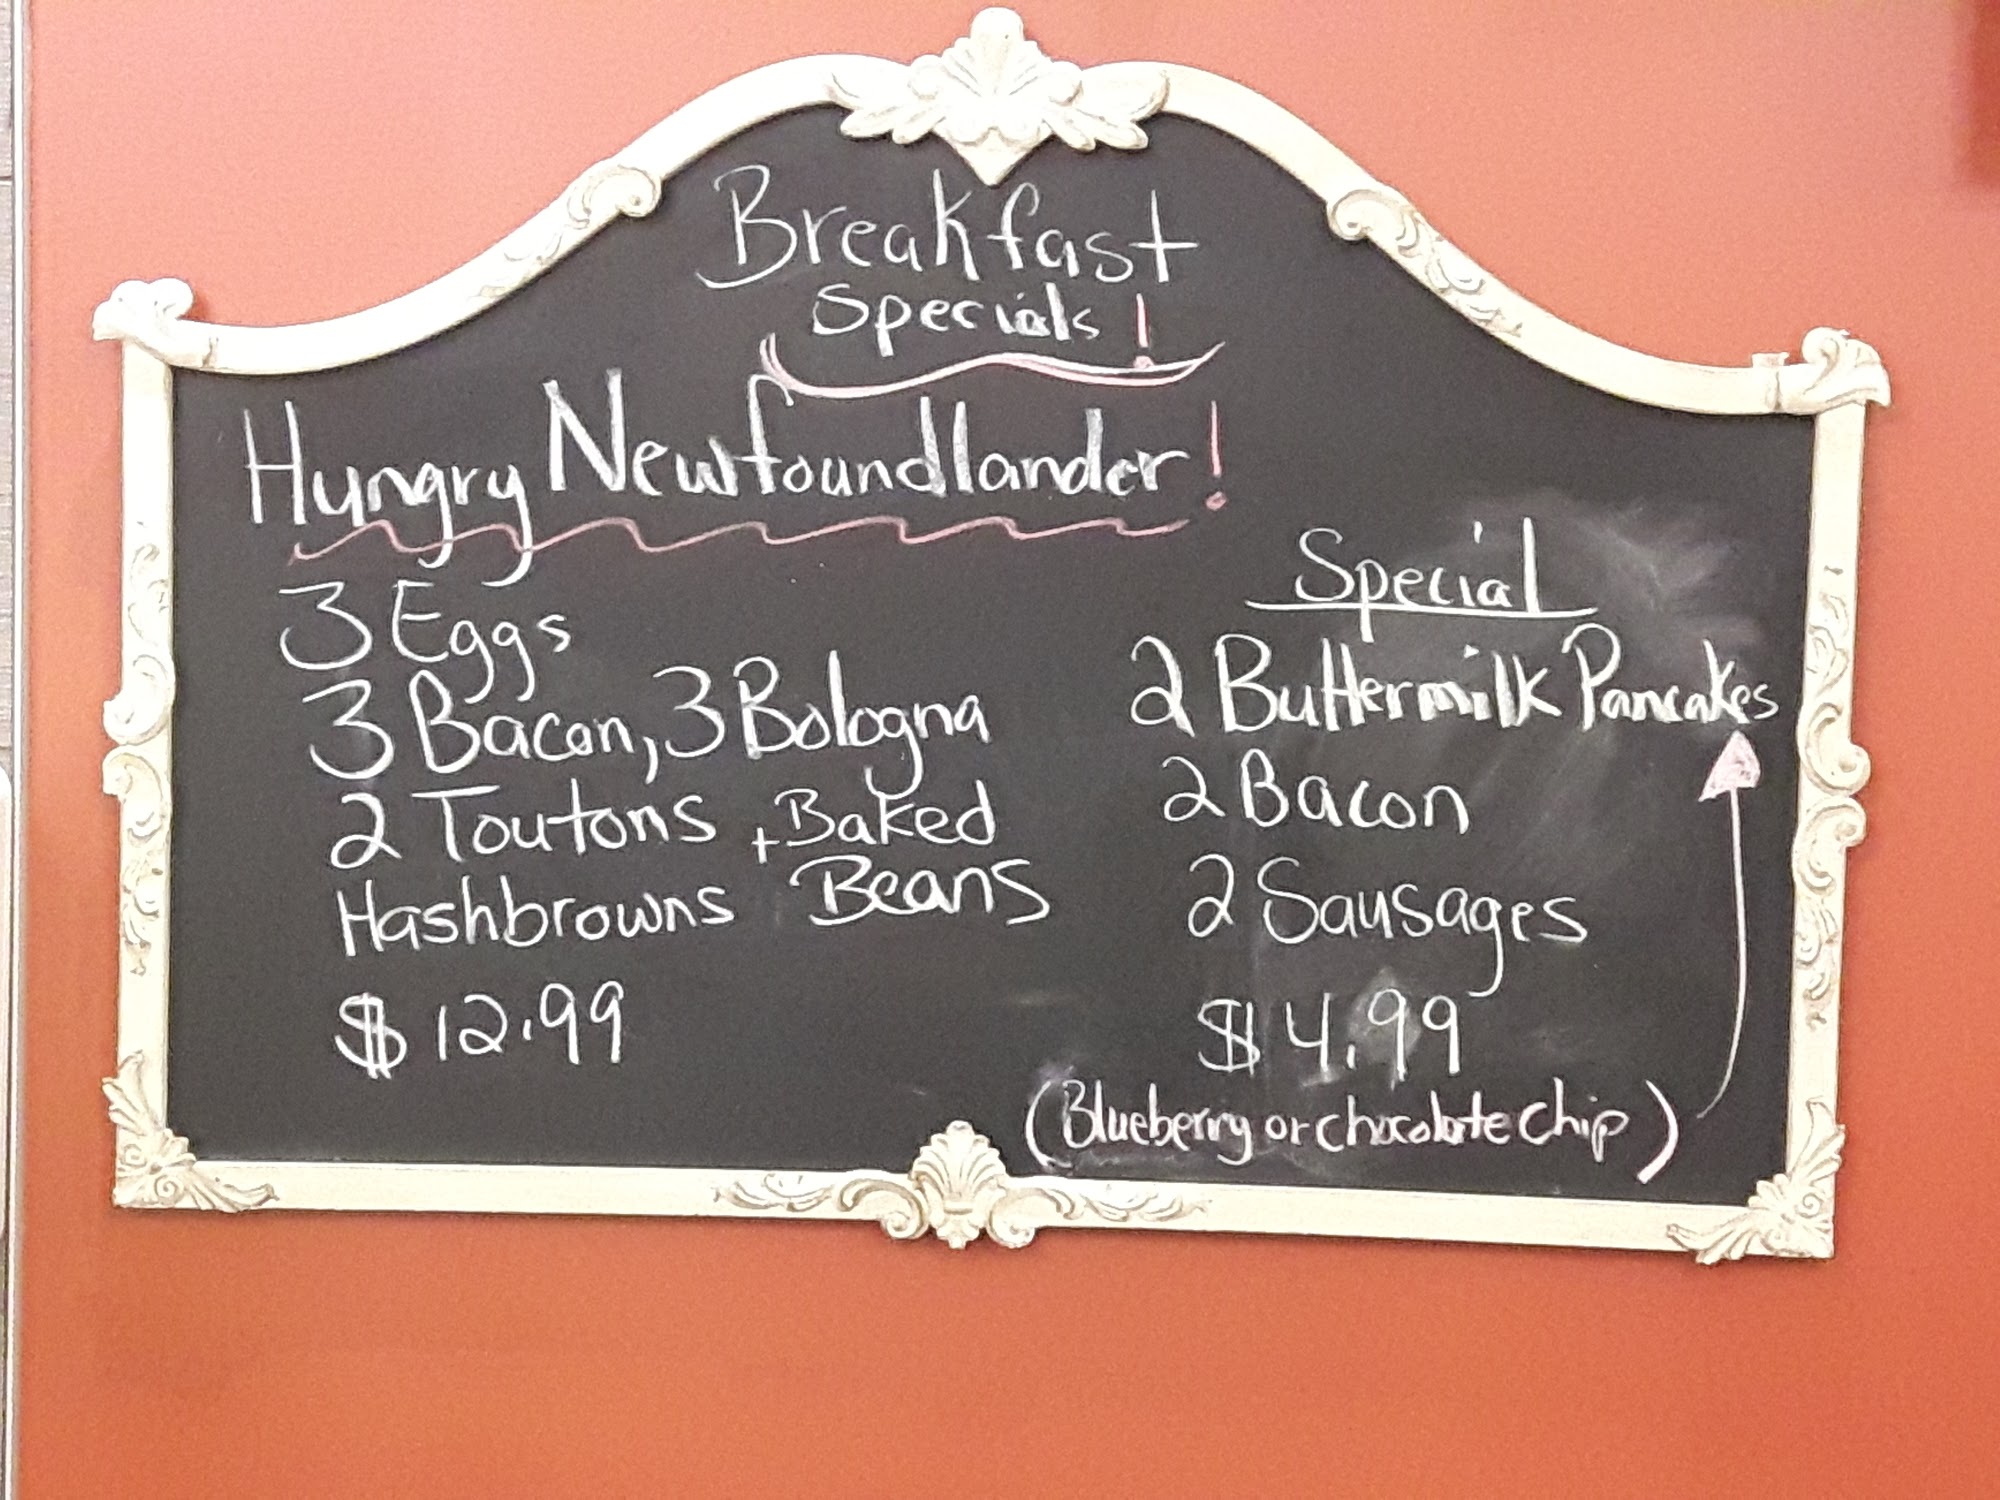 Breakfast
Specials!
Hungry Newfoundlander!
3 Eggs
3 Bacon, 3 Bologna
2 Toutons + Baked
Hashbrowns Beans
$12.99
Special
2 Buttermilk Pancakes
2 Bacon
2 Sausages
$4.99
(Blueberry or chocolate chip)